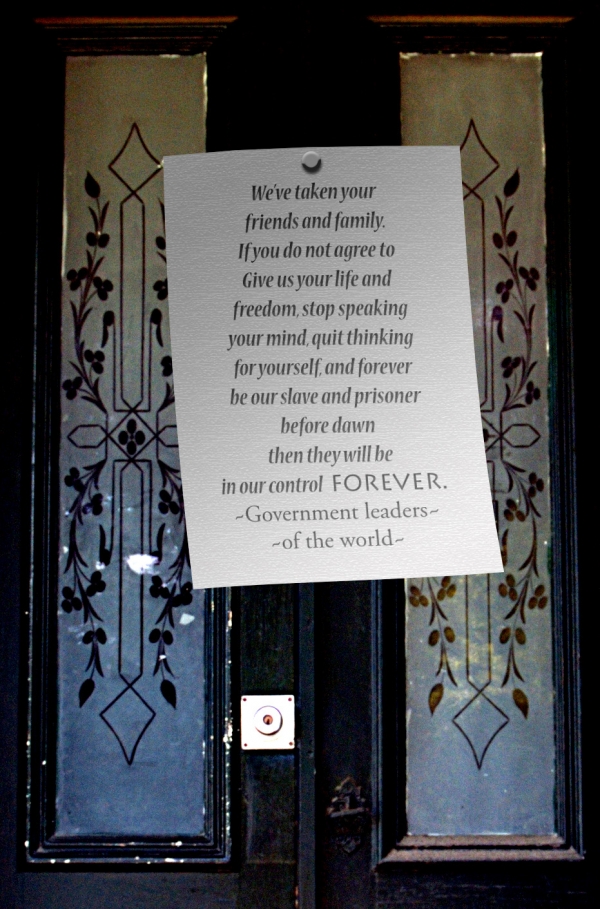 We've taken your
friends and family.
If you do not agree to
Give us your life and
freedom, stop speaking
your mind, quit thinking
for yourself, and forever
be our slave and prisoner
before dawn
then they will be
in our control FOREVER.
~Government leaders~
~of the world~